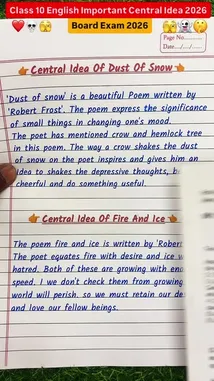 Class 10 English Important Central Idea 2026
Board Exam 2026
Page No.
Date
Central Idea Of Dust Of Snow
'Dust of snow' is a beautiful Poem written by
'Robert Frost'. The poem express the significance
of small things in changing one's mood.
The poet has mentioned crow and hemlock tree
in this poem. The way a crow shakes the dust
of snow on the poet inspires and gives him an
idea to shakes the depressive thoughts, b
cheerful and do something useful.
Central Idea Of Fire And Ice
The poem fire and ice is written by 'Robert
The poet equates fire with desire and ice w
hatred. Both of these are growing with eno
speed. I we don't check them from growing
world will perish. so we must retain our de
and love our fellow beings.